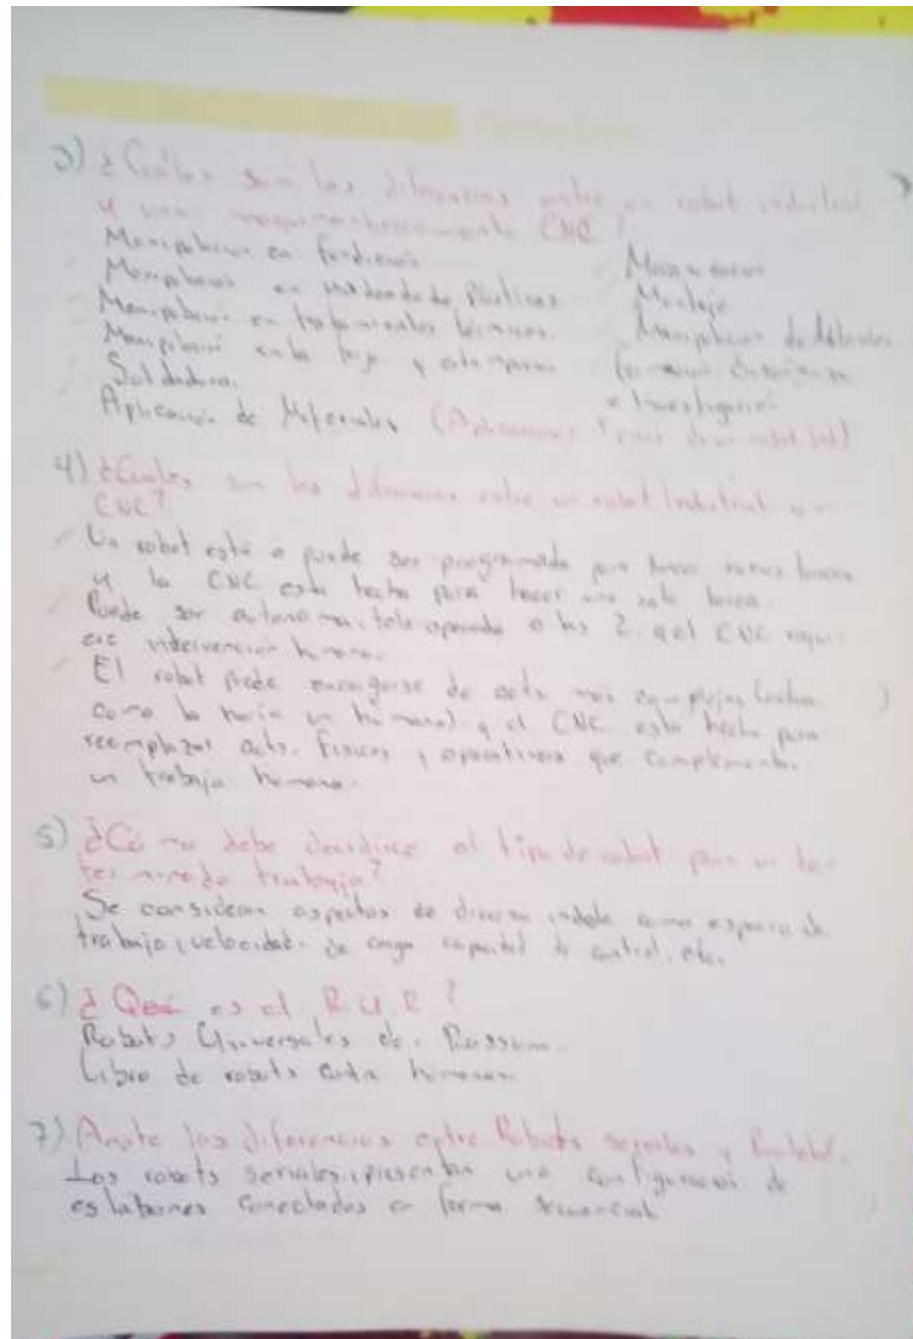 3) ¿Cuáles son las diferencias entre un robot industrial
y una CNC?
Manipulacion en fundicion
Manipulacion en Moldeado de Plasticos
Manipulacion en tratamientos termicos
Manipulacion en la forja y estampacion
Soldadura
Aplicacion de Materiales
Mecanizacion
Montaje
Manipulacion de
formacion Enseñanza
e Investigacion
4) ¿Cuales son las diferencias entre un robot Industrial y
CNC?
Un robot está o puede ser programado para hacer varias tareas
y la CNC esta hecha para hacer una sola tarea.
Puede ser autonomo, tele operado o los 2. y el CNC requi-
ere intervencion humana.
El robot puede encargarse de acts más complejas
como lo haria un humano) y el CNC esta hecho para
reemplazar acts. Fisicas y operativas que complementan
un trabajo humano.
5) ¿Cómo debe decidirse el tipo de robot para un de-
terminado trabajo?
Se consideran aspectos de diversa indole como espacio de
trabajo, velocidad, de carga capacidad de control, etc.
6) ¿Qué es el R U R?
Robots Universales de Rossum.
Libro de robots contra humanos
7) Anote las diferencias entre Robots seriales y
Los robots seriales presentan una configuracion de
eslabones conectados en forma secuencial